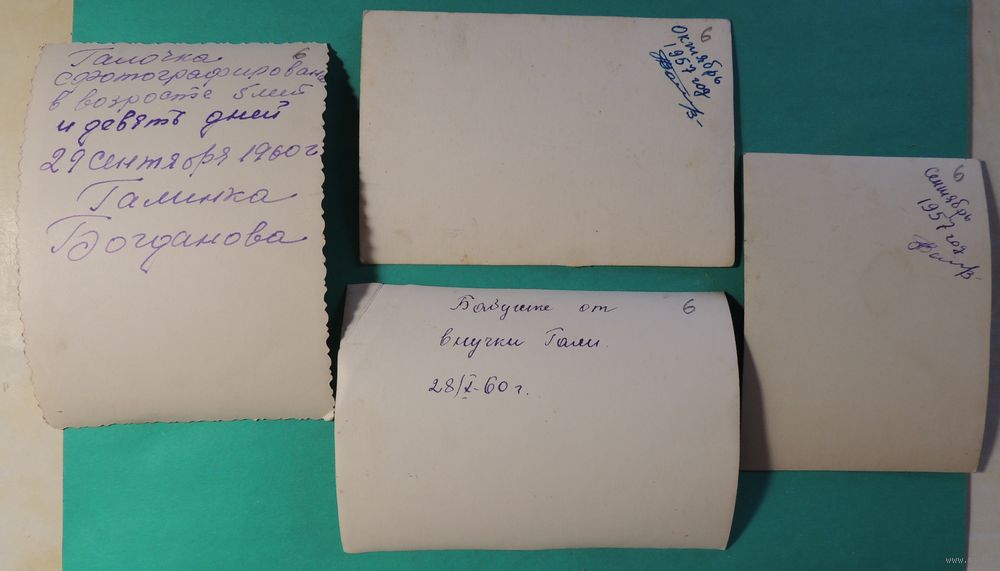 Галочка
сфотографирована
в возросте 5 лет
и девять дней
29 сентября 1960 г
Галинка
Богданова
6
Октябрь
1957 год
6
Сентябрь
1957 год
6
Бабушке от
внучки Гали.
28/X-60 г.
6
www.